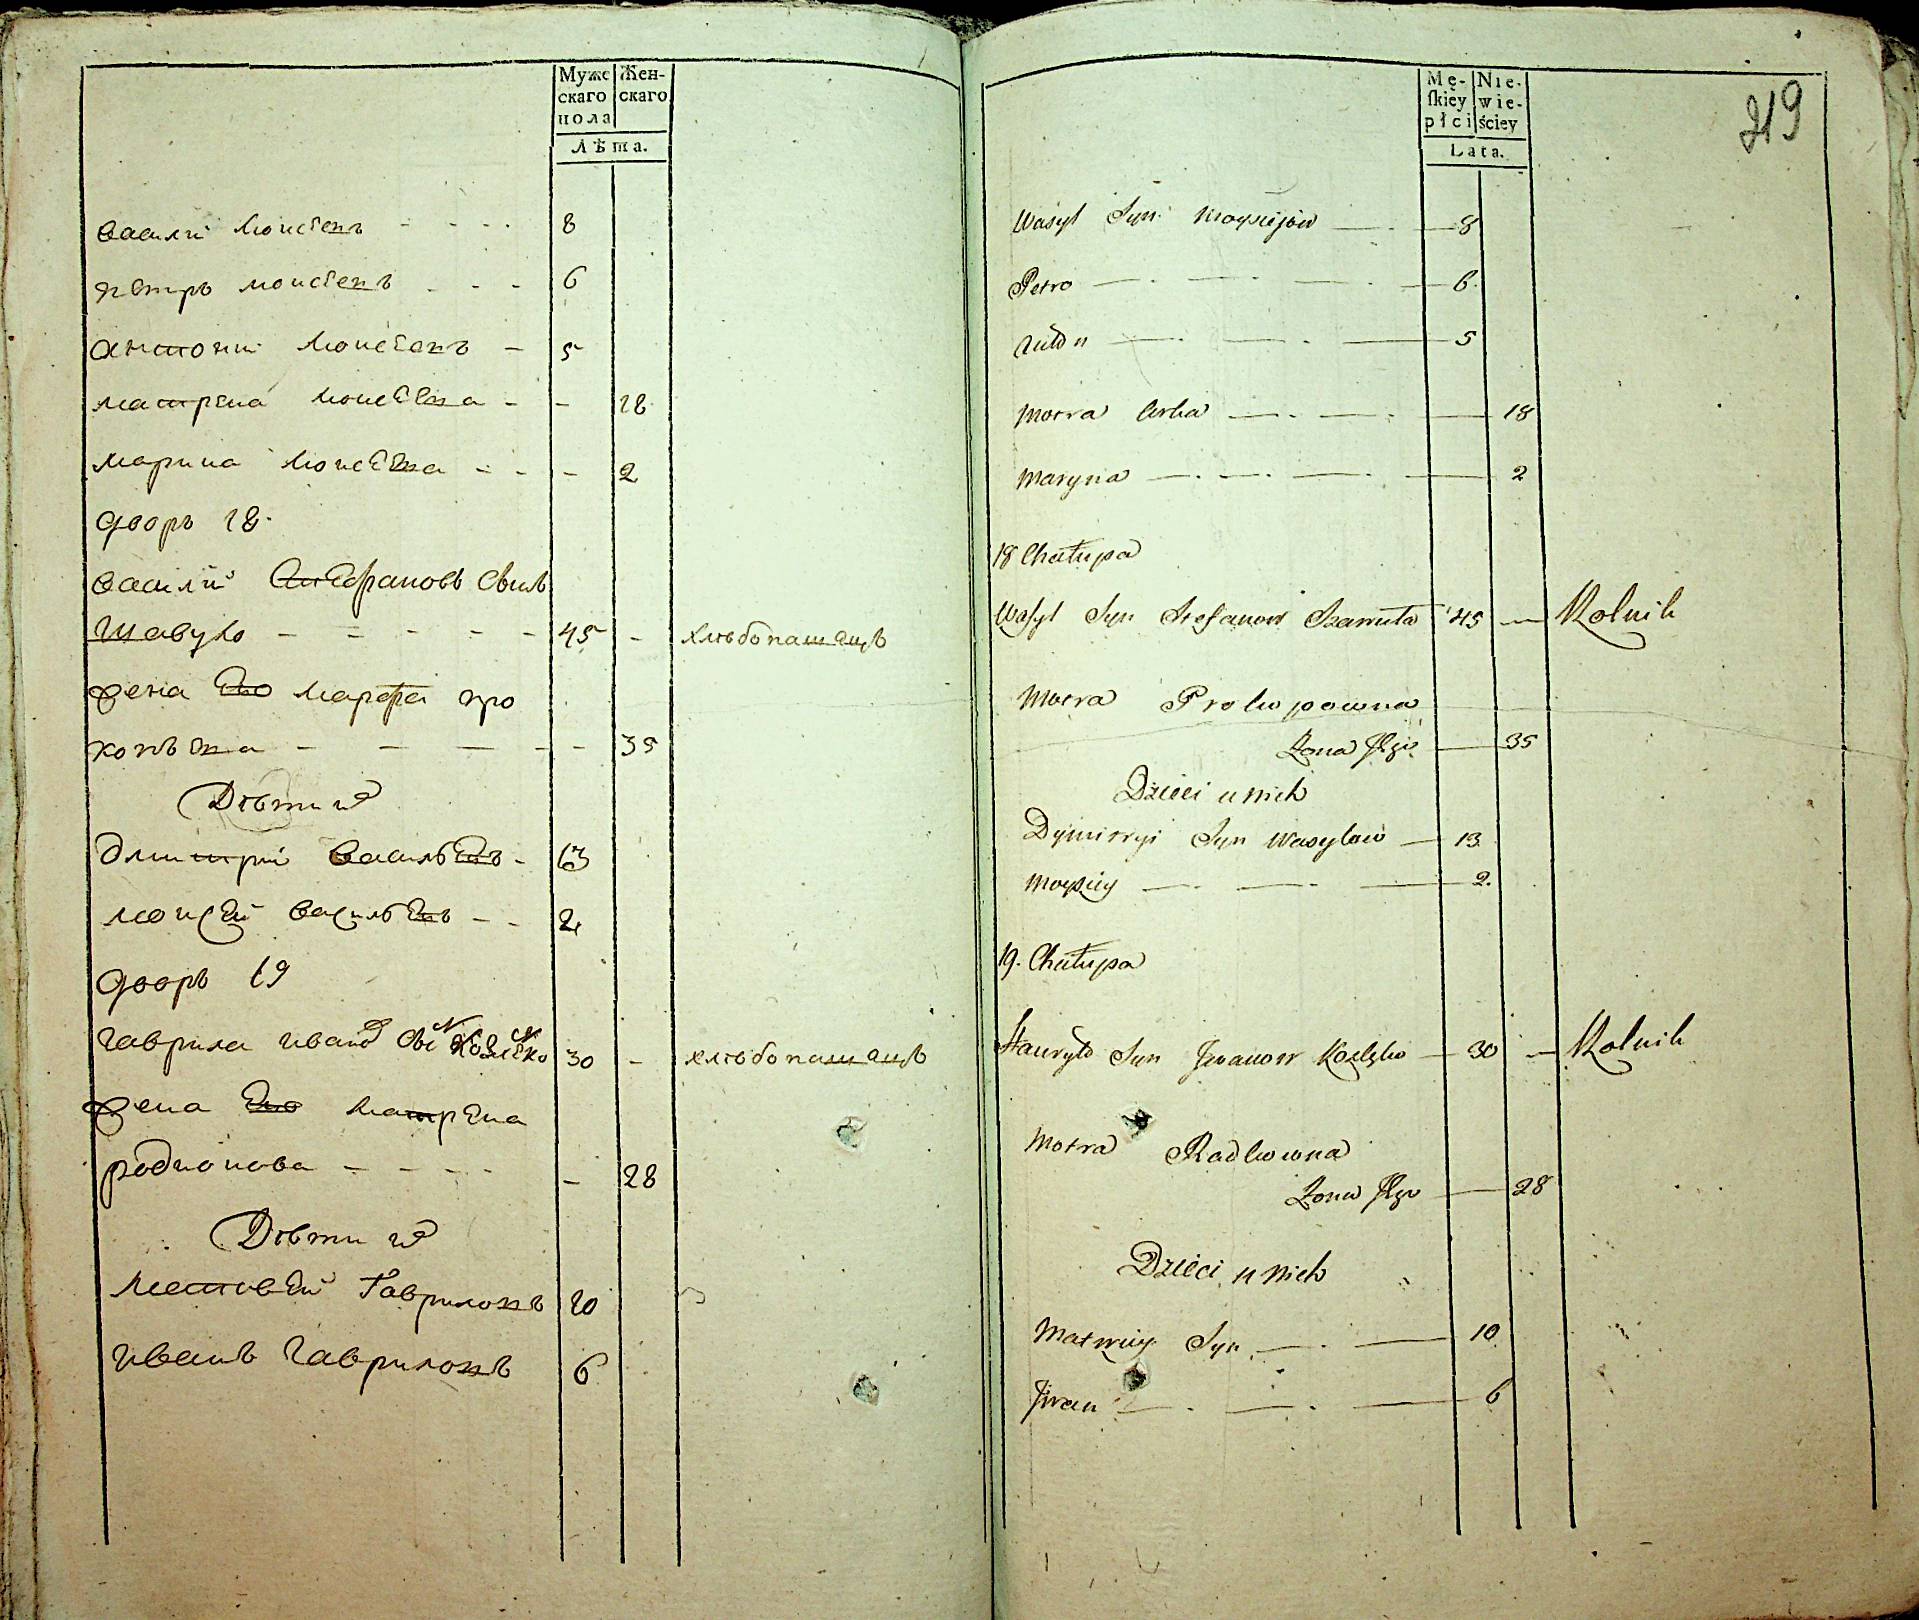 Муже Жен-
скаго скаго
пола
Лѣта.
васили Моисеенъ 8
петръ моисеенъ 6
антонии Моисеенъ - 5
матрена Моисеева - - 18
марина Моисеева - - - 2
дворъ 18.
васили Стефановъ Сынъ
Шавуло - - - - - 45 - хлѣбопашецъ
жена Его Марфа про
копьева - - - - - 35
Дѣти их
дмитрий васильевъ - 13
моисей васильевъ - - 2
дворъ 19
гаврила иванов Сынъ Козлѣко 30 - хлѣбопашецъ
жена Его Матрена
родионова - - - - - 28
Дѣти их
Матвей Гавриловъ 10
иванъ гавриловъ 6
Mę- Nie-
ſkiey wie-
płci ściey
Lata.
219
Wasyl Syn Moysiejow 8
Petro 6.
Anton 5
Motra Corka 18
Maryna 2
18 Chałupa
Wasyl Syn Stefanow 45 Rolnik
Motra Prokopowna
Zona Jego 35
Dzieci u nich
Dymitryi Syn Wasylow 13
Moysiey 2.
19. Chałupa
Hawryło Syn Jwanow Kozlęko 30 Rolnik
Motra
Zona Jego 28
Dzieci u nich
Matwiey Syn 10
Jwan 6